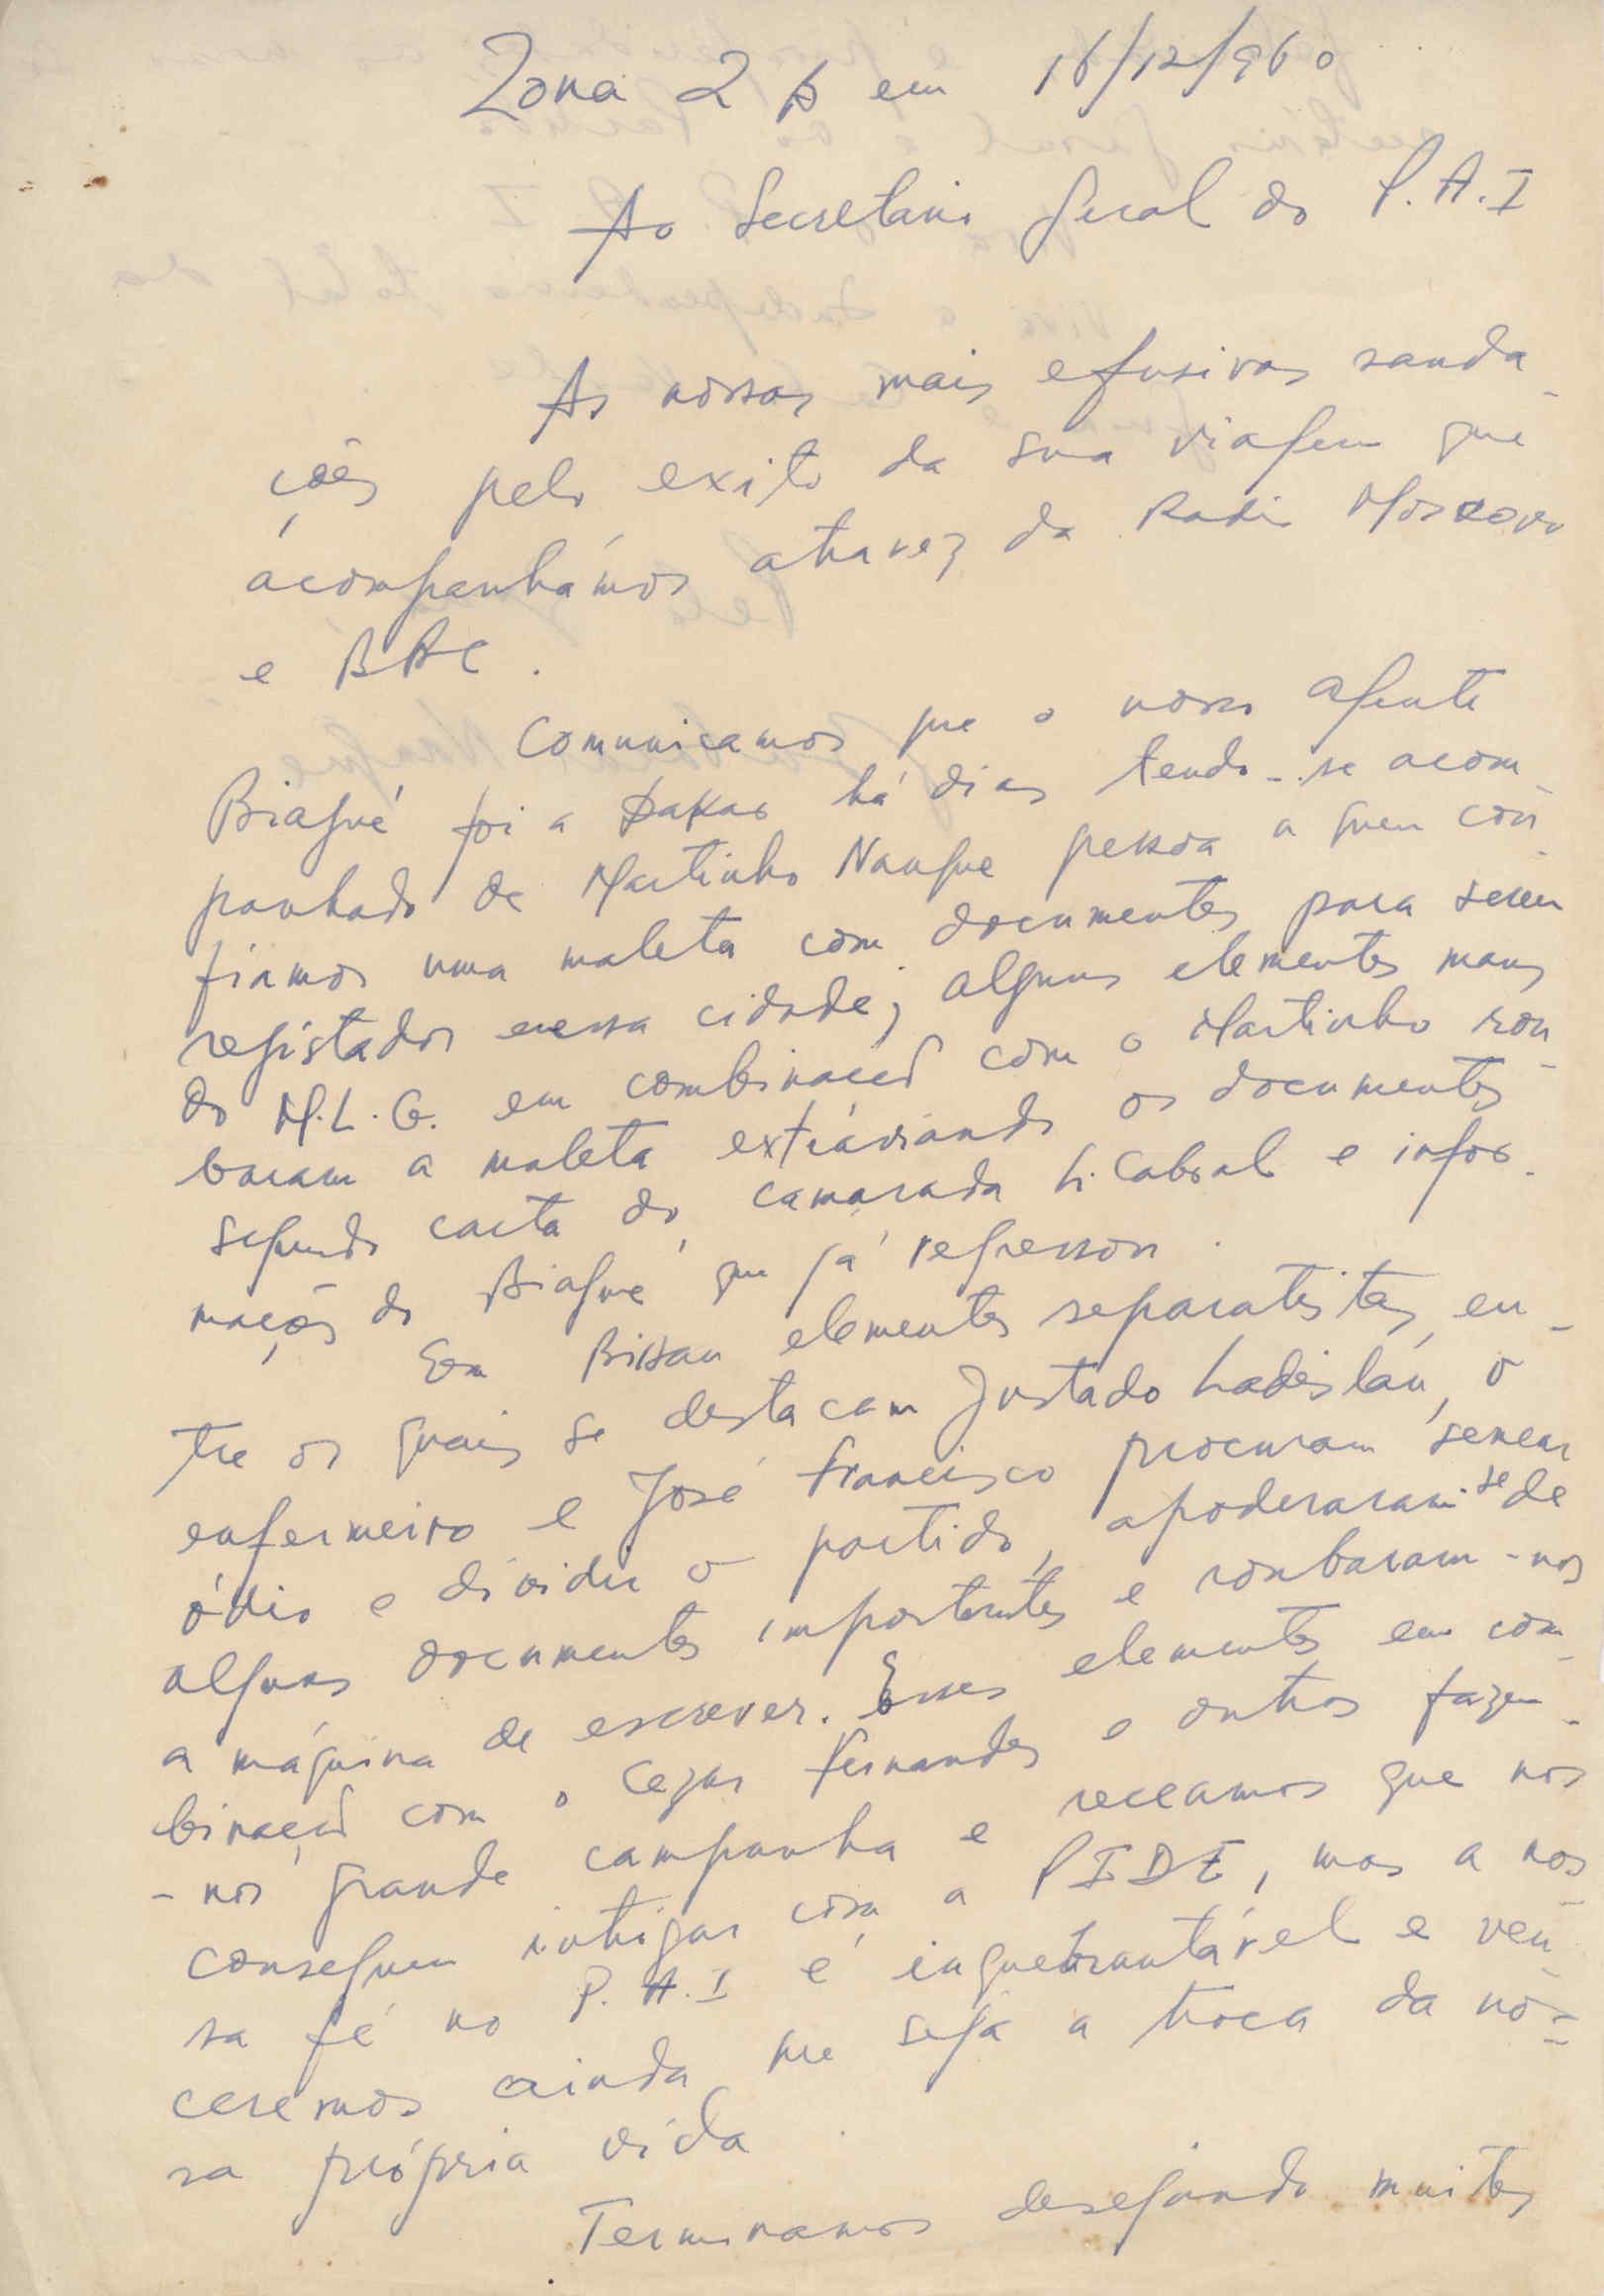 Zona 2 B em 16/12/960
Ao Secretario Geral do P.A.I
As nossas mais efusivas sauda-
ções pelo exito da sua viagem que
acompanhámos atravez da Radio Moscovo
e BBC.
Comunicamos que o nosso agente
Biagué foi a Dakar há dias tendo-se acom-
panhado de Martinho Nangue pessoa a quem con-
fiamos uma maleta com documentos para serem
registados nessa cidade; alguns elementos maus
do M.L.G. em combinação com o Martinho rou-
baram a maleta extraviando os documentos
segundo carta do camarada L. Cabral e infor-
mações do Biagué que já regressou.
Em Bissau elementos separatistas, en-
tre os quais se destacam Justado Ladislau, o
enfermeiro e José Francisco procuram semear
ódio e dividir o partido, apoderaram-se de
alguns documentos importantes e roubaram-nos
a máquina de escrever. Esses elementos em com-
binação com o Cezar Fernandes e outros fazem-
-nos grande campanha e receamos que nos
conseguem intrigar com a PIDE, mas a nos-
sa fé no P.A.I é inquebrantável e ven-
ceremos ainda que seja a troca da nos-
sa própria vida
Terminamos desejando muitos